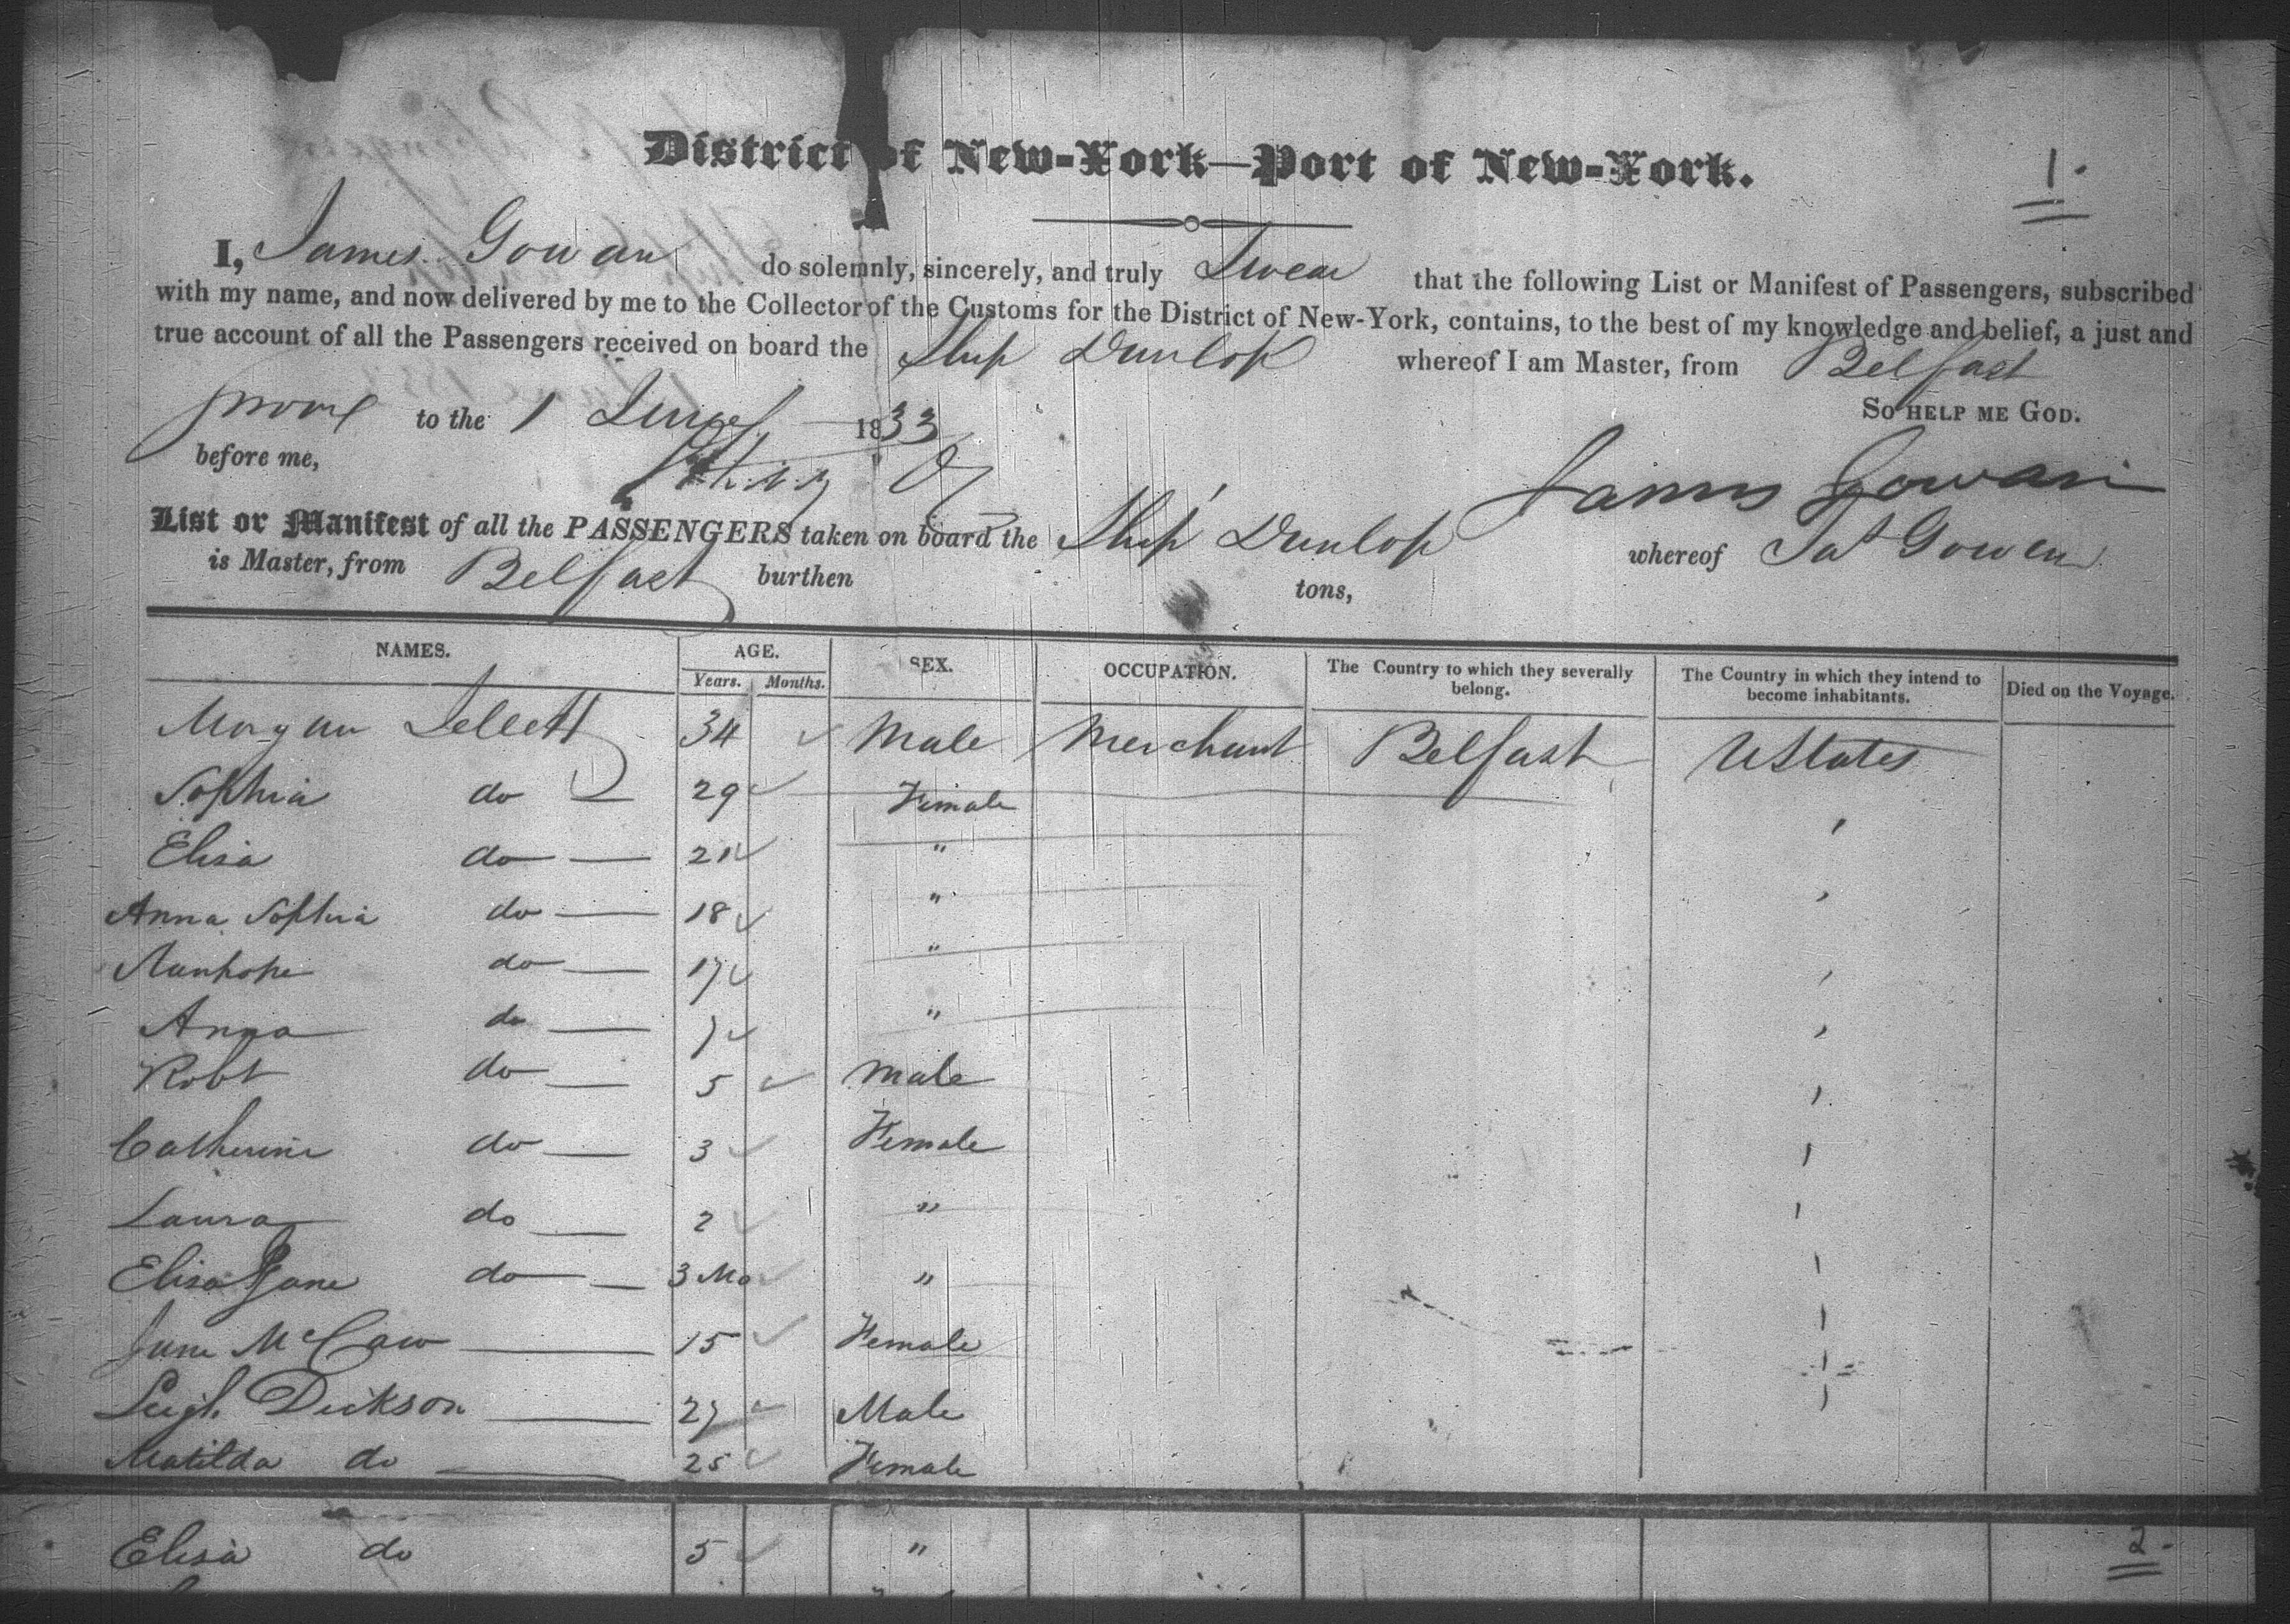 District of New-York—Port of New-York.
1.
I, James Gowan do solemnly, sincerely, and truly Swear that the following List or Manifest of Passengers, subscribed
with my name, and now delivered by me to the Collector of the Customs for the District of New-York, contains, to the best of my knowledge and belief, a just and
true account of all the Passengers received on board the Ship Dunlop whereof I am Master, from Belfast
to the 1 June 1833 SO HELP ME GOD.
before me, James Gowan
List or Manifest of all the PASSENGERS taken on board the Ship Dunlop whereof Jas Gowan
is Master, from Belfast burthen tons,
NAMES. AGE. SEX. OCCUPATION. The Country to which they severally belong. The Country in which they intend to become inhabitants. Died on the Voyage.
Years. Months.
Morgan Jellett 34 Male Merchant Belfast UStates
Sophia do 29 Female
Elisa do 21 "
Anna Sophia do 18 "
do 17 "
Anna do 7 "
Robt do 5 Male
Catherine do 3 Female
Laura do 2 "
Elisa Jane do 3 Mo "
Jane McCaw 15 Female
Leigh Dickson 27 Male
Matilda do 25 Female
Elisa do 5 "
2.